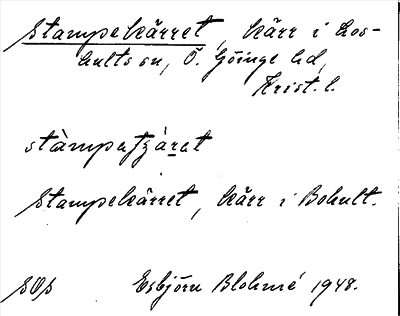 Stampekärret, kärr i Los-
hults sn, Ö. Göinge hd,
Krist. l.
Stampekärret, kärr i Bohult.
SOs Esbjörn Blohmé 1948.